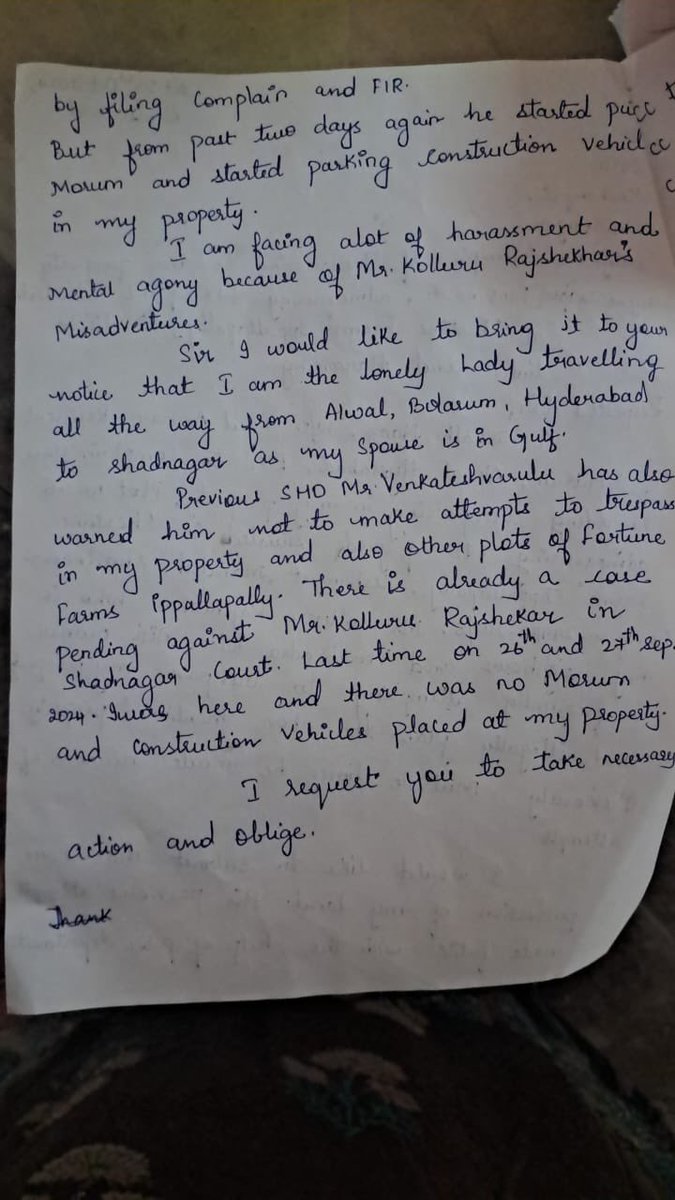 by filing Complain and FIR.
But from past two days again he started
Morum and started parking construction vehicle
in my property.
I am facing alot of harassment and
Mental agony because of Mr. Kolluru Rajshekhar's
Misadventures.
Sir I would like to bring it to your
notice that I am the lonely Lady travelling
all the way from Alwal, Bolarum, Hyderabad
to shadnagar as my Spouse is in Gulf.
Previous SHO Mr. Venkateshvarulu has also
warned him not to make attempts to trespass
in my property and also other plots of Fortune
Farms Ippallapally. There is already a case
Pending against Mr. Kolluru Rajshekar in
Shadnagar Court. Last time on 26th and 27th Sep.
2024. I was here and there was no Morum
and construction Vehicles placed at my property.
I request you to take necessary
action and oblige.
Thank